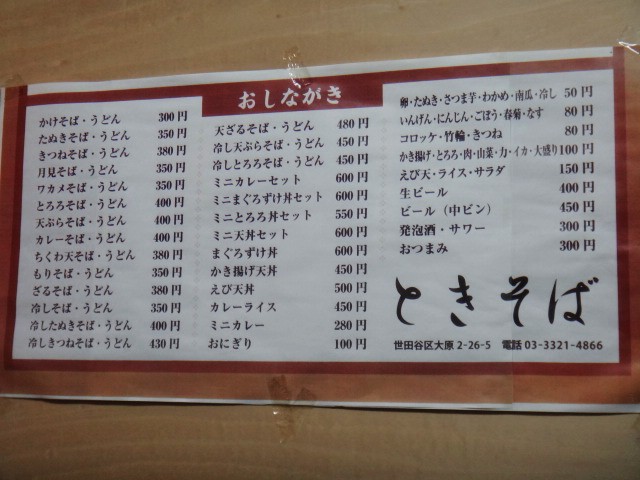 おしながき
かけそば・うどん 300円
たぬきそば・うどん 350円
きつねそば・うどん 380円
月見そば・うどん 350円
ワカメそば・うどん 350円
とろろそば・うどん 400円
天ぷらそば・うどん 400円
カレーそば・うどん 400円
ちくわ天そば・うどん 380円
もりそば・うどん 350円
ざるそば・うどん 380円
冷しそば・うどん 350円
冷したぬきそば・うどん 400円
冷しきつねそば・うどん 430円
天ざるそば・うどん 480円
冷し天ぷらそば・うどん 450円
冷しとろろそば・うどん 450円
ミニカレーセット 600円
ミニまぐろずけ丼セット 600円
ミニとろろ丼セット 550円
ミニ天丼セット 600円
まぐろずけ丼 600円
かき揚げ天丼 450円
えび天丼 500円
カレーライス 450円
ミニカレー 280円
おにぎり 100円
卵・たぬき・さつま芋・わかめ・南瓜・冷し 50円
いんげん・にんじん・ごぼう・春菊・なす 80円
コロッケ・竹輪・きつね 80円
かき揚げ・とろろ・肉・山菜・力・イカ・大盛り 100円
えび天・ライス・サラダ 150円
生ビール 400円
ビール（中ビン） 450円
発泡酒・サワー 300円
おつまみ 300円
ときそば
世田谷区大原 2-26-5 電話 03-3321-4866